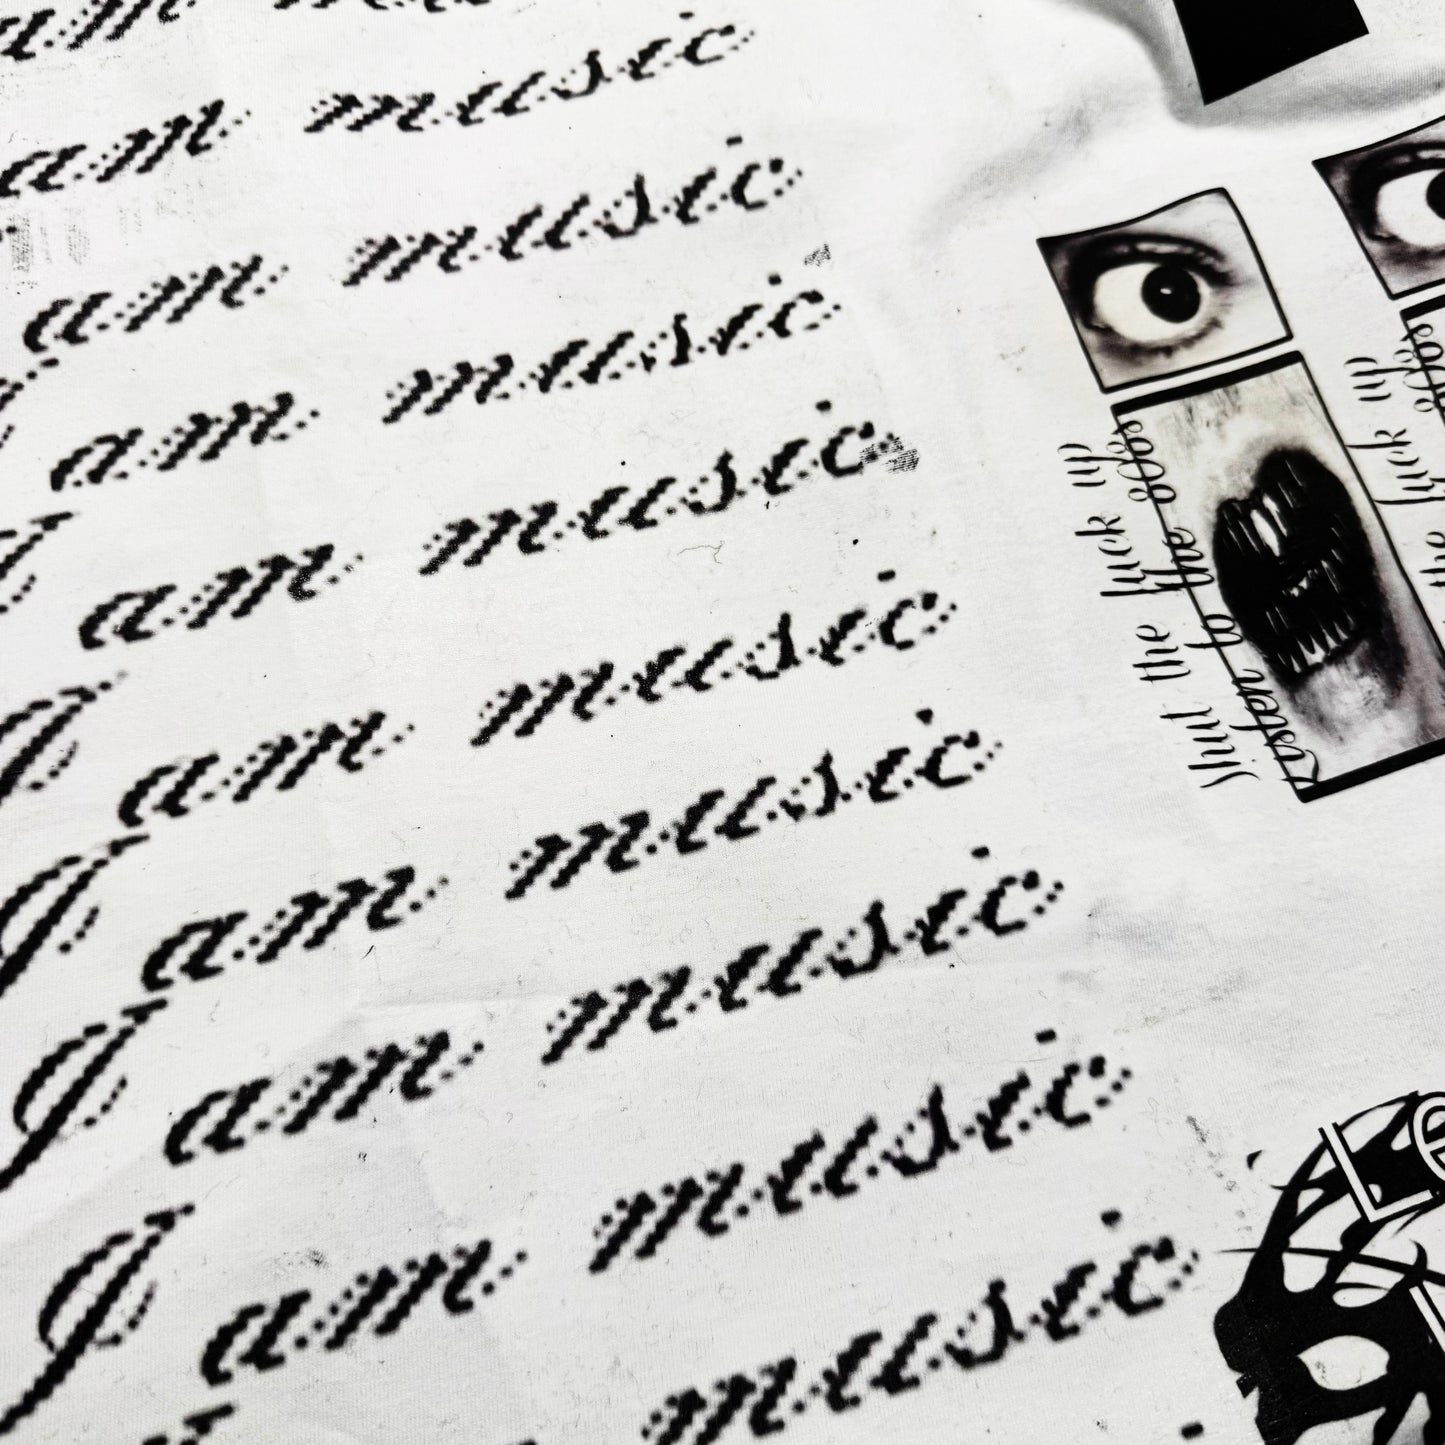 am
am music
am music
am music
I am music
I am music
I am music
I am music
I am music
music
Shut the fuck up
Listen to the 808s
fuck up
the 808s
Le